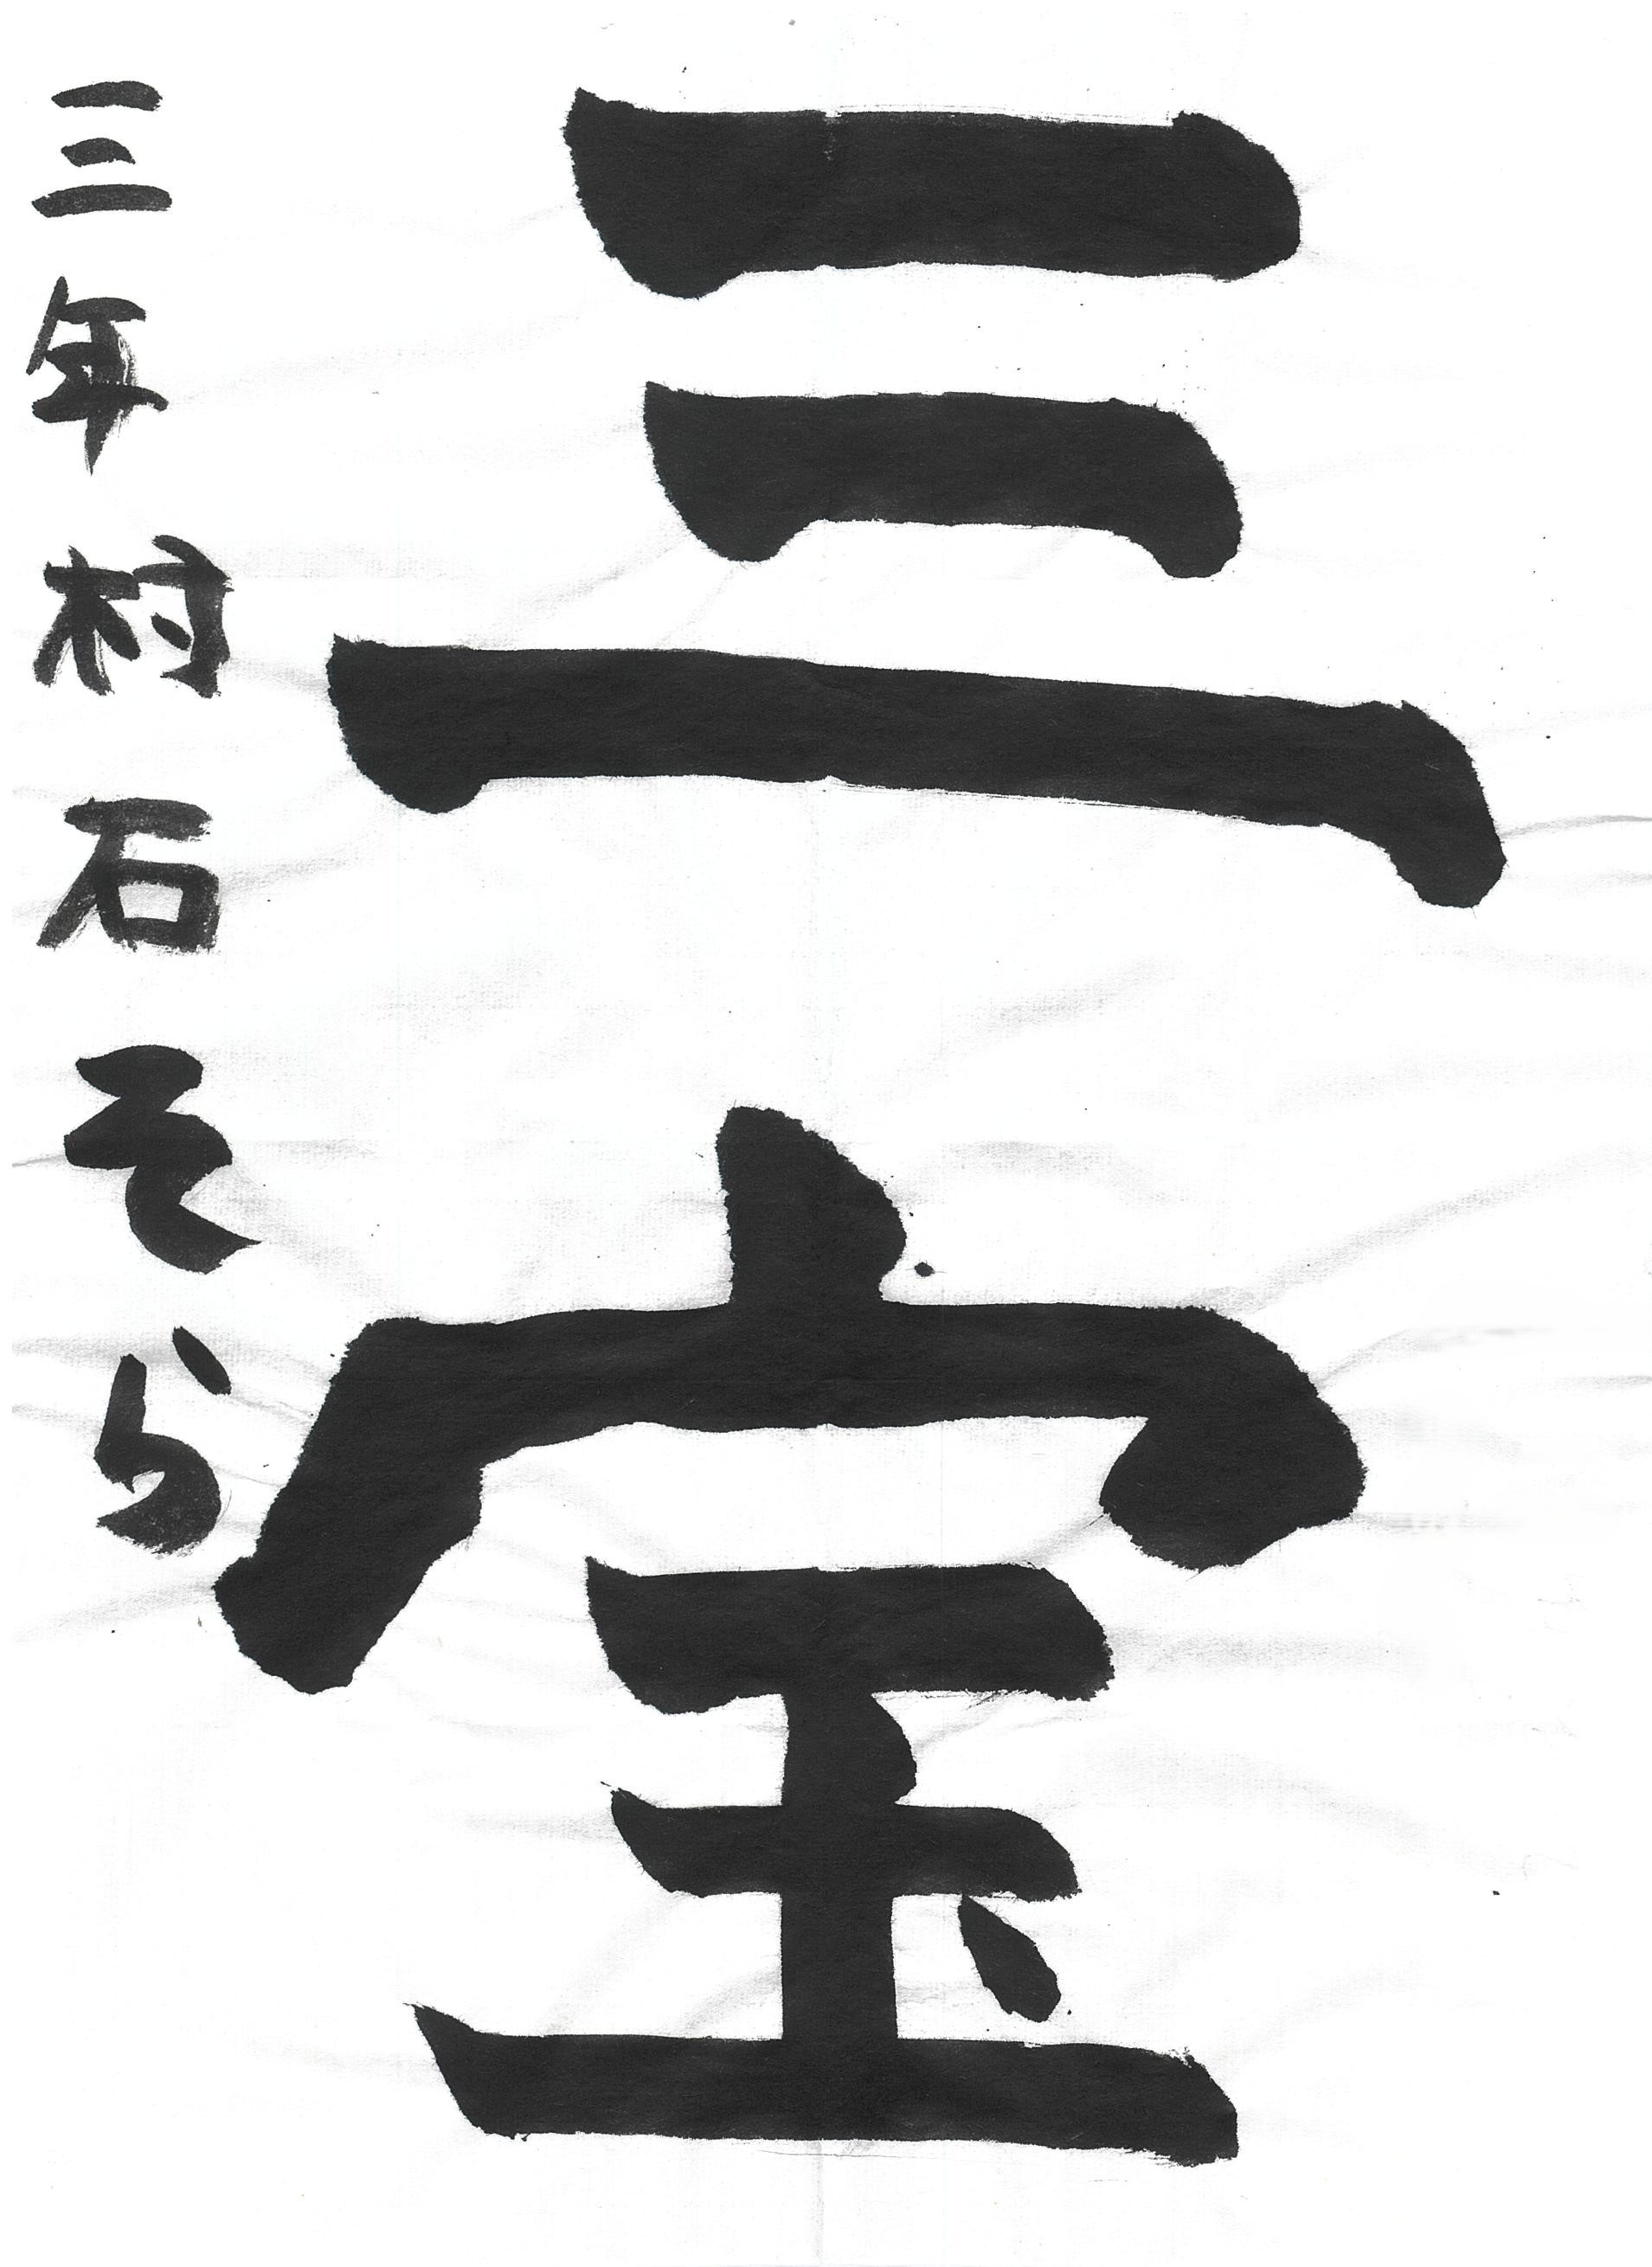 三宝
三年村石そら